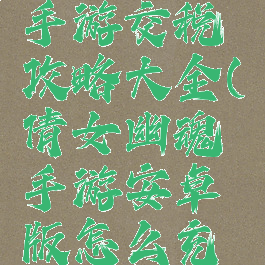 手游交税
攻略大全(
倩女幽魂
手游安卓
版怎么充